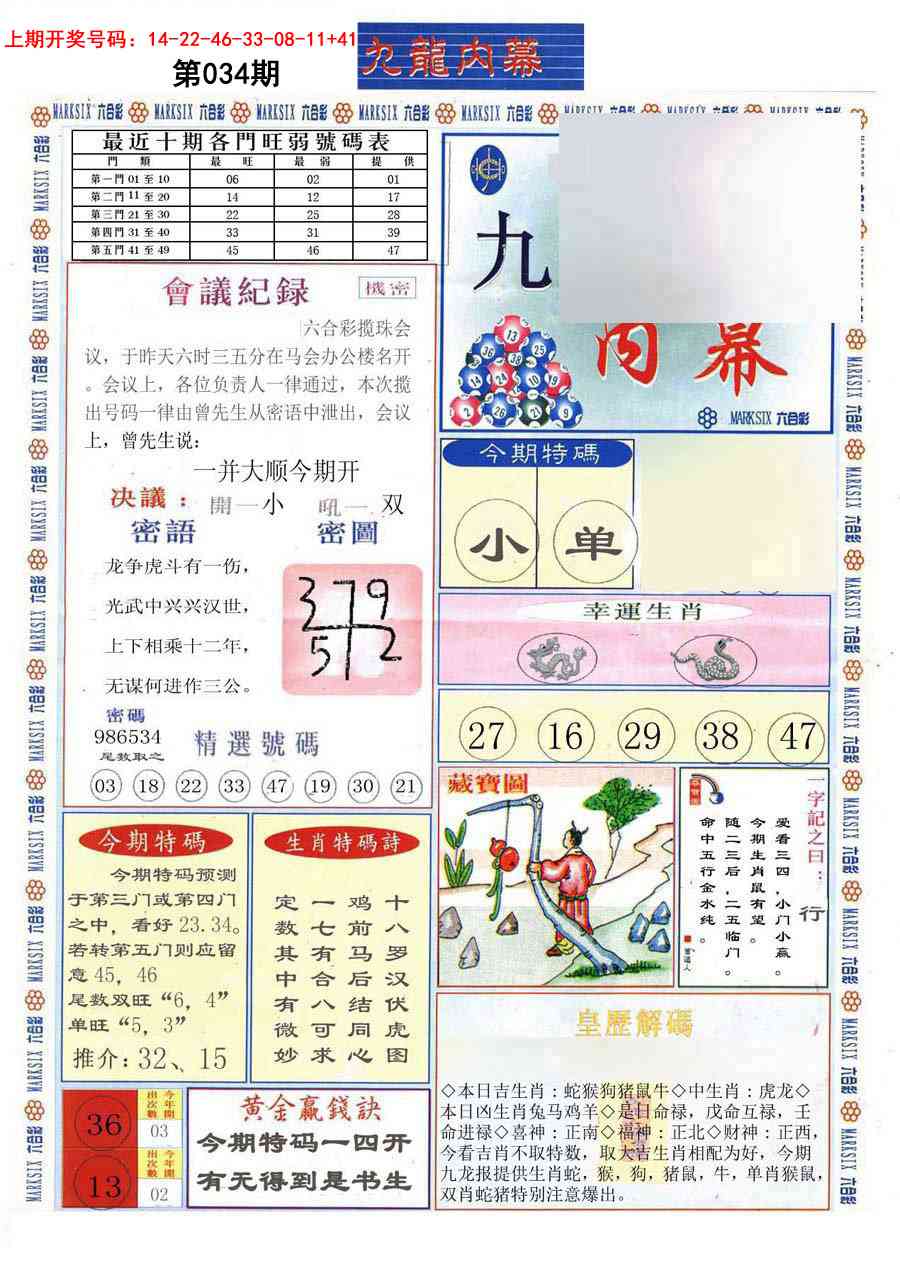 上期开奖号码：14-22-46-33-08-11+41
第034期
九龍内幕
MARKSIX 六合彩 MARKSIX 六合彩 MARKSIX 六合彩 MARKSIX 六合彩 MARKSIX 六合彩
最近十期各門旺弱號碼表
門 類 最 旺 最 弱 提 供
第一門 01 至 10 06 02 01
第二門 11 至 20 14 12 17
第三門 21 至 30 22 25 28
第四門 31 至 40 33 31 39
第五門 41 至 49 45 46 47
會議紀録
機密
六合彩搅珠会
议，于昨天六时三五分在马会办公楼名开
。会议上，各位负责人一律通过，本次搅
出号码一律由曾先生从密语中泄出，会议
上，曾先生说：
一并大顺今期开
决議：開一小 吼一双
密語 密圖
龙争虎斗有一伤，
光武中兴兴汉世，
上下相乘十二年，
无谋何进作三公。
379
512
密碼
986534
尾数取之
精選號碼
03 18 22 33 47 19 30 21
九
内幕
13
36 38 25
14 24 10 19
2 26 21 9
MARKSIX 六合彩
今期特碼
小 单
幸運生肖
27 16 29 38 47
藏寶圖
一字記之曰：
行
爱看三四，小门小赢。
今期生肖鼠有望。
随二三后，二五临门。
命中五行金水纯。
今期特碼
今期特码预测
于第三门或第四门
之中，看好23.34。
若转第五门则应留
意45，46
尾数双旺“6，4”
单旺“5，3”
推介：32、15
生肖特碼詩
十八罗汉伏虎图
鸡前马后结同心
一七有合八可求
定数其中有微妙
36
今年開出次數
03
13
今年開出次數
02
黄金赢錢訣
今期特码一四开
有无得到是书生
皇歷解碼
◇本日吉生肖：蛇猴狗猪鼠牛◇中生肖：虎龙◇
本日凶生肖兔马鸡羊◇是日命禄，戊命互禄，壬
命进禄◇喜神：正南◇福神：正北◇财神：正西，
今看吉肖不取特数，取大吉生肖相配为好，今期
九龙报提供生肖蛇，猴，狗，猪鼠，牛，单肖猴鼠，
双肖蛇猪特别注意爆出。